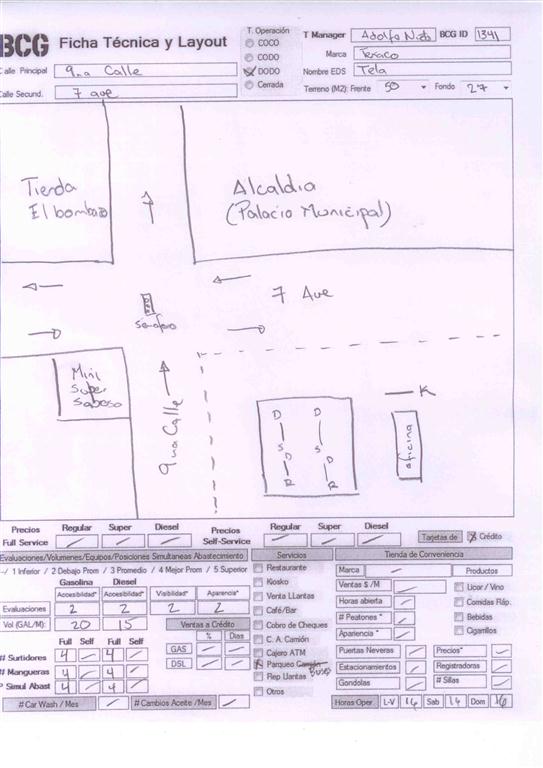 BCG Ficha Técnica y Layout
T. Operación
COCO
CODO
DODO
Cerrada
T Manager Adolfo Nieto BCG ID 1341
Marca Texaco
Nombre EDS Tela
Terreno (M2): Frente 50 Fondo 27
Calle Principal 9na Calle
Calle Secund. 7 ave
Tienda
El bombazo
Alcaldia
(Palacio Municipal)
7 Ave
Semaforo
Mini
Super
Saboso
9na Calle
K
D D
S S
D D
R R
oficina
Precios Full Service Regular Super Diesel
Precios Self-Service Regular Super Diesel
Tarjetas de Crédito
Evaluaciones/Volumenes/Equipos/Posiciones Simultaneas Abastecimiento
1 Inferior / 2 Debajo Prom / 3 Promedio / 4 Mejor Prom / 5 Superior
Gasolina Diesel
Accesibilidad* Accesibilidad* Visibilidad* Aparencia*
Evaluaciones 2 2 2 2
Vol (GAL/M): 20 15
Ventas a Crédito
% Dias
GAS
DSL
Full Self Full Self
# Surtidores 4 4
# Mangueras 4 4
P Simul Abast 4 4
# Car Wash / Mes
# Cambios Aceite /Mes
Servicios
Restaurante
Kosko
Venta LLantas
Café/Bar
Cobro de Cheques
C. A. Camión
Cajero ATM
Parqueo Camión Buses
Rep Llantas
Otros
Tienda de Conveniencia
Marca Productos
Ventas $ /M
Horas abierta
# Peatones *
Apariencia *
Licor / Vino
Comidas Ráp.
Bebidas
Cigarrilos
Puertas Neveras Precios*
Estacionamientos Registradoras
Gondolas # Sillas
Horas Oper. L-V 16 Sab 14 Dom 16